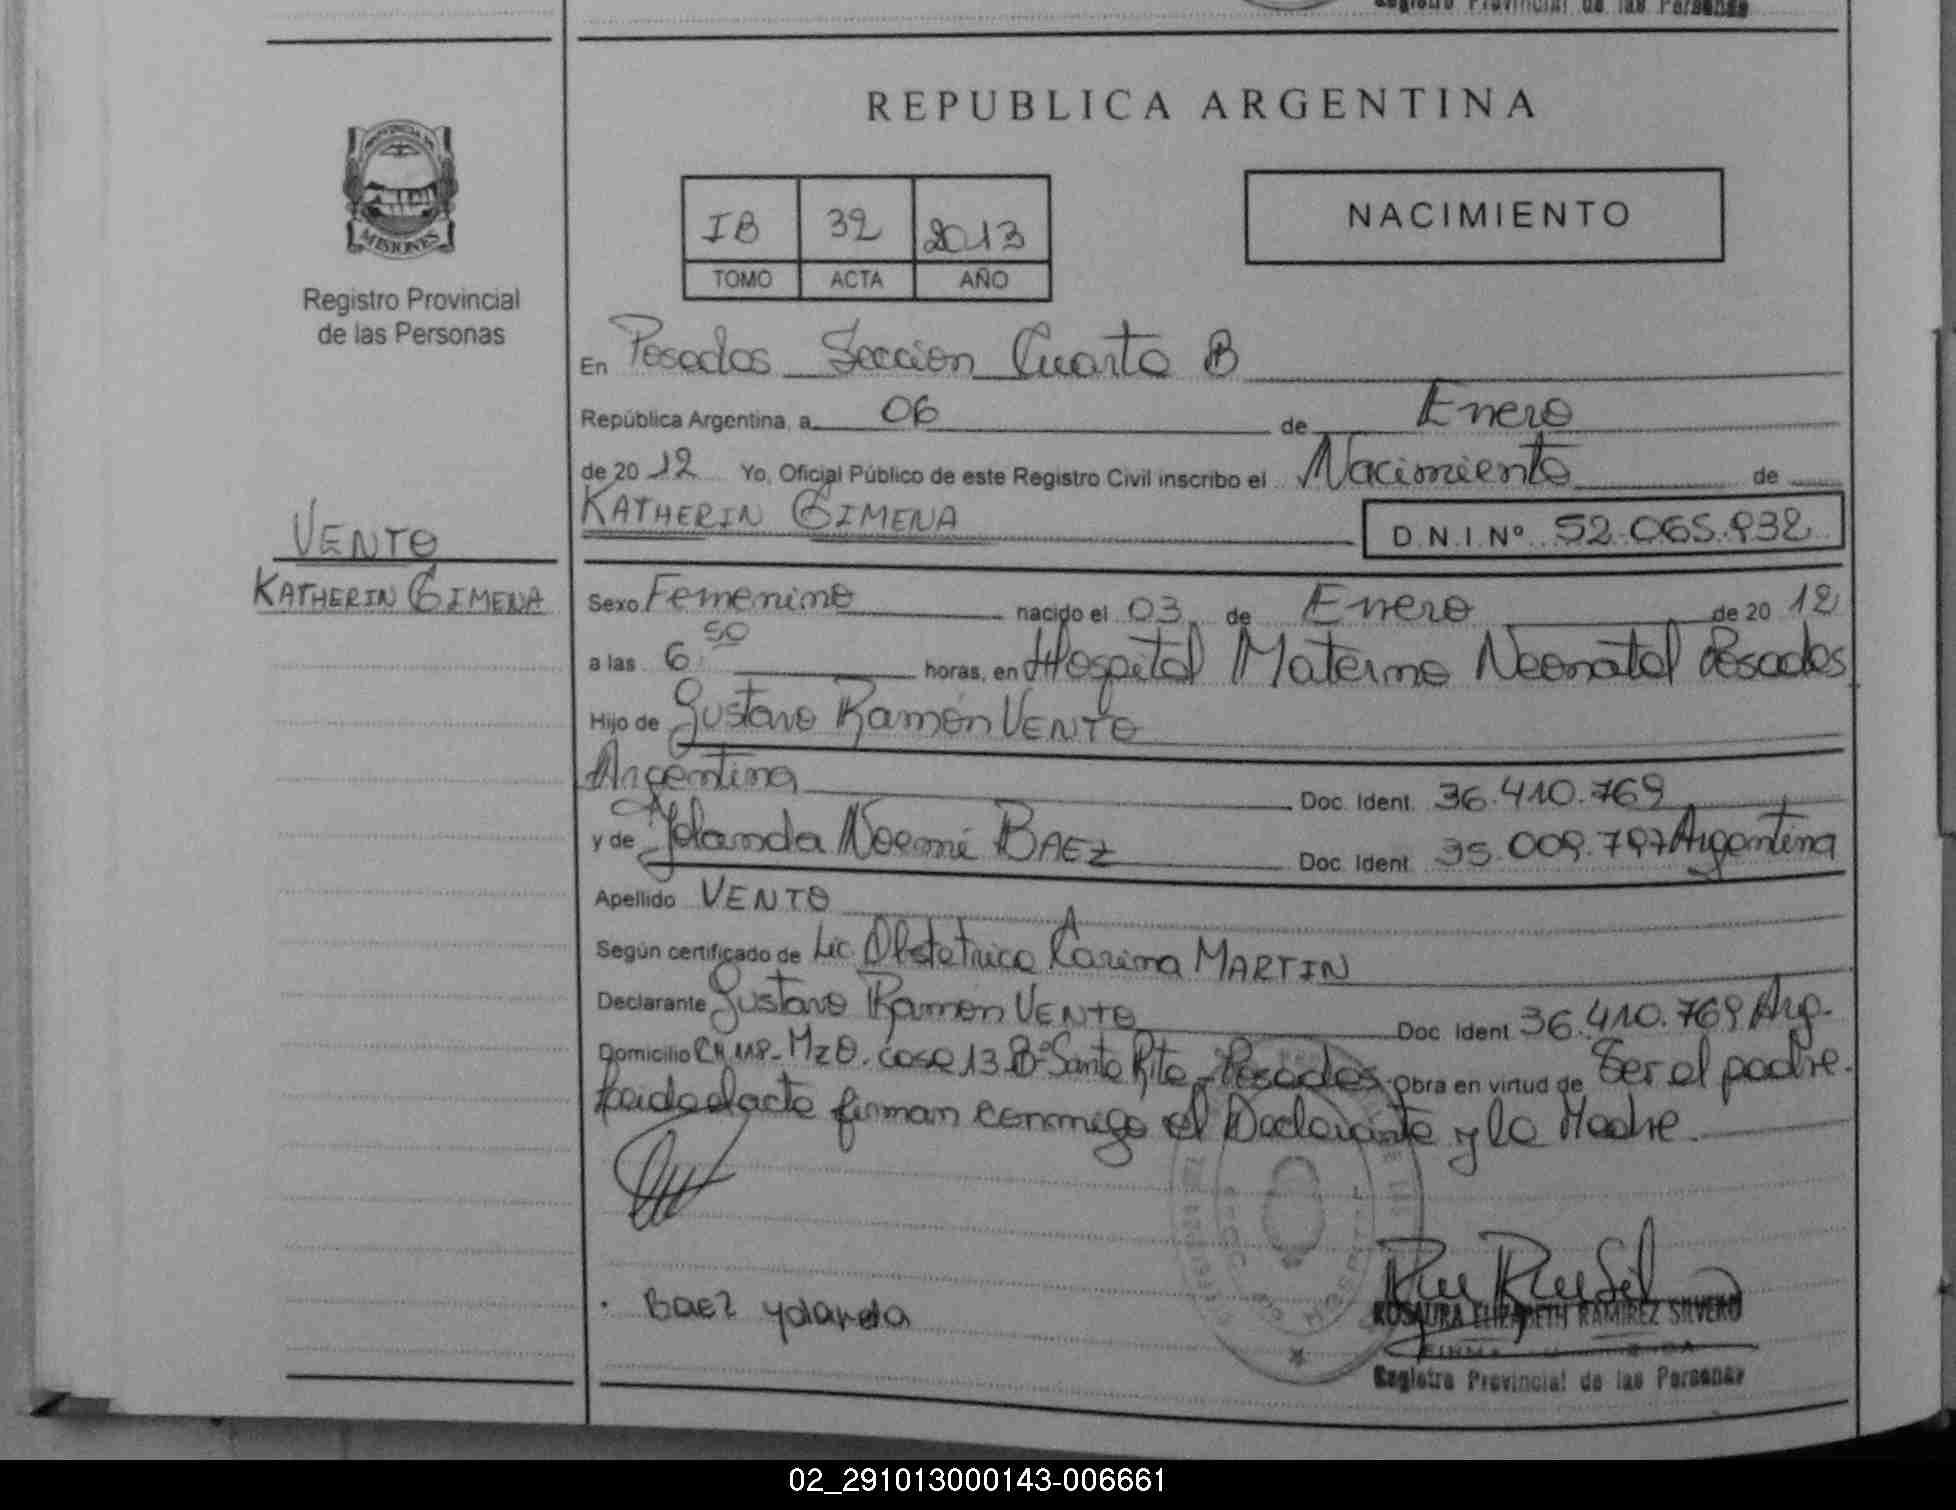 Registro Provincial de las Personas
REPUBLICA ARGENTINA
PROVINCIA DE
MISIONES
Registro Provincial
de las Personas
IB 32 2013
TOMO ACTA AÑO
NACIMIENTO
En Posadas Sección Cuarta B
República Argentina, a 06 de Enero
de 2012 Yo, Oficial Público de este Registro Civil inscribo el Nacimiento de
KATHERIN GIMENA
D.N.I.Nº 52.065.932
VENTO
KATHERIN GIMENA
Sexo Femenino nacido el 03 de Enero de 2012
a las 6 50 horas, en Hospital Materno Neonatal Posadas
Hijo de Gustavo Ramón VENTO
Argentina Doc. Ident. 36.410.769
y de Yolanda Noemi BAEZ Doc. Ident. 35.009.797 Argentina
Apellido VENTO
Según certificado de Lic. Obstetrica Carina A MARTIN
Declarante Gustavo Ramón VENTO Doc. Ident. 36.410.769 Arg.
Domicilio CH 118- Mz O. casa 13 Bº Santa Rita - Posadas. Obra en virtud de Ser el padre.
Leida el acta firman conmigo el Declarante y la Madre.
Baez yolanda
ROSAURA ELIZABETH RAMIREZ SILVERO
Registro Provincial de las Personas
02_291013000143-006661